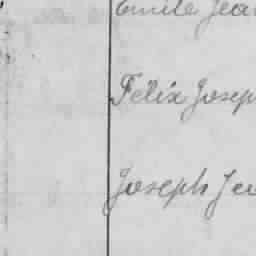 Emile Jea
Félix Josep
Joseph Jea